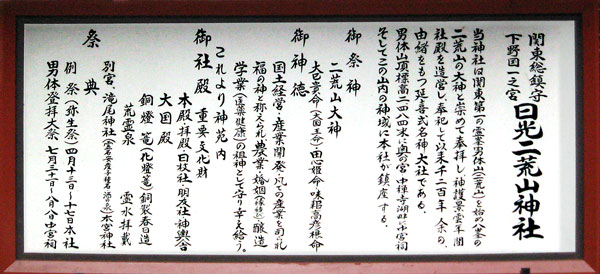 関東総鎮守
下野国一之宮
日光二荒山神社
当神社は関東第一の霊峯男体山(二荒山)を始め八峯の
二荒山の大神と崇めて奉拝し、神護景雲年間
社殿を造営し、奉祀して以来千二百年余の、
由緒をもつ延喜式名神大社である。
男体山頂標高二四八四米に奥の宮、中禅寺湖畔に中宮祠
そしてこの山内の神域に本社が鎮座する。
御祭神
二荒山大神
大己貴命(大国主命)田心姫命 味耜高彦根命
御神徳
国土経営・産業開発、凡ての産業を司られ
福の神と称えられ農業・婚姻(縁結)・醸造
学業(医薬健康)の祖神として守り幸え給う。
これより神苑内
御社殿 重要文化財
本殿 拝殿・日枝社・朋友社・神輿舎
大国殿
銅燈篭(化燈篭) 銅製春日造
二荒霊泉 霊水拝戴
別宮、滝尾神社 本宮神社
祭典
例祭(弥生祭)四月十三日〜十七日 本社
男体登拝大祭 七月三十一日〜八月八日 中宮祠